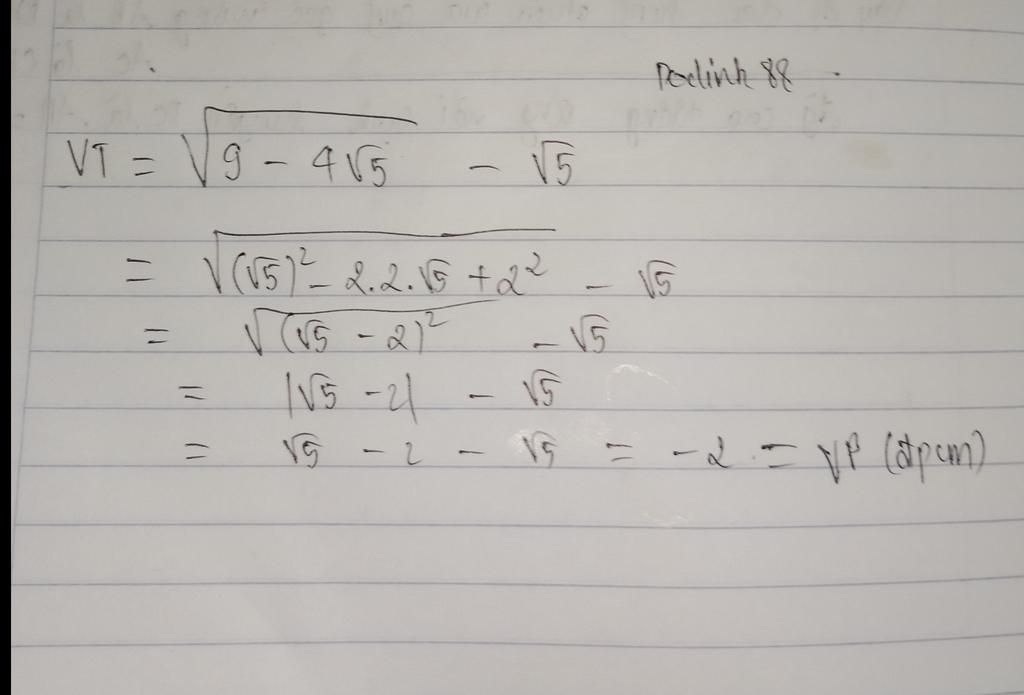 Doclinh 88
VT = √(9 - 4√5) - √5
= √((√5)² - 2.2.√5 + 2²) - √5
= √((√5 - 2)²) - √5
= |√5 - 2| - √5
= √5 - 2 - √5 = -2 = VP (đpcm)